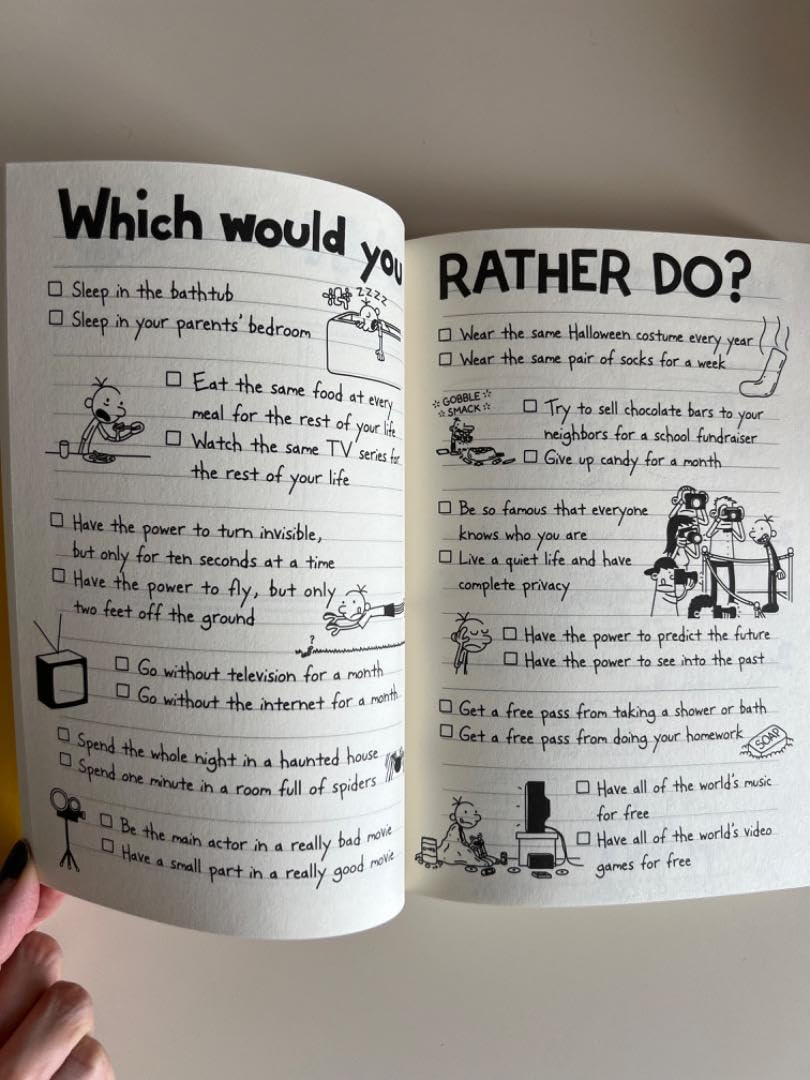 Which would you
☐ Sleep in the bathtub
☐ Sleep in your parents' bedroom
ZZZZ
☐ Eat the same food at every
meal for the rest of your life
☐ Watch the same TV series for
the rest of your life
☐ Have the power to turn invisible,
but only for ten seconds at a time
☐ Have the power to fly, but only
two feet off the ground
?
☐ Go without television for a month
☐ Go without the internet for a month
☐ Spend the whole night in a haunted house
☐ Spend one minute in a room full of spiders
☐ Be the main actor in a really bad movie
☐ Have a small part in a really good movie
RATHER DO?
☐ Wear the same Halloween costume every year
☐ Wear the same pair of socks for a week
GOBBLE
SMACK
☐ Try to sell chocolate bars to your
neighbors for a school fundraiser
☐ Give up candy for a month
☐ Be so famous that everyone
knows who you are
☐ Live a quiet life and have
complete privacy
☐ Have the power to predict the future
☐ Have the power to see into the past
☐ Get a free pass from taking a shower or bath
☐ Get a free pass from doing your homework
SOAP
☐ Have all of the world's music
for free
☐ Have all of the world's video
games for free